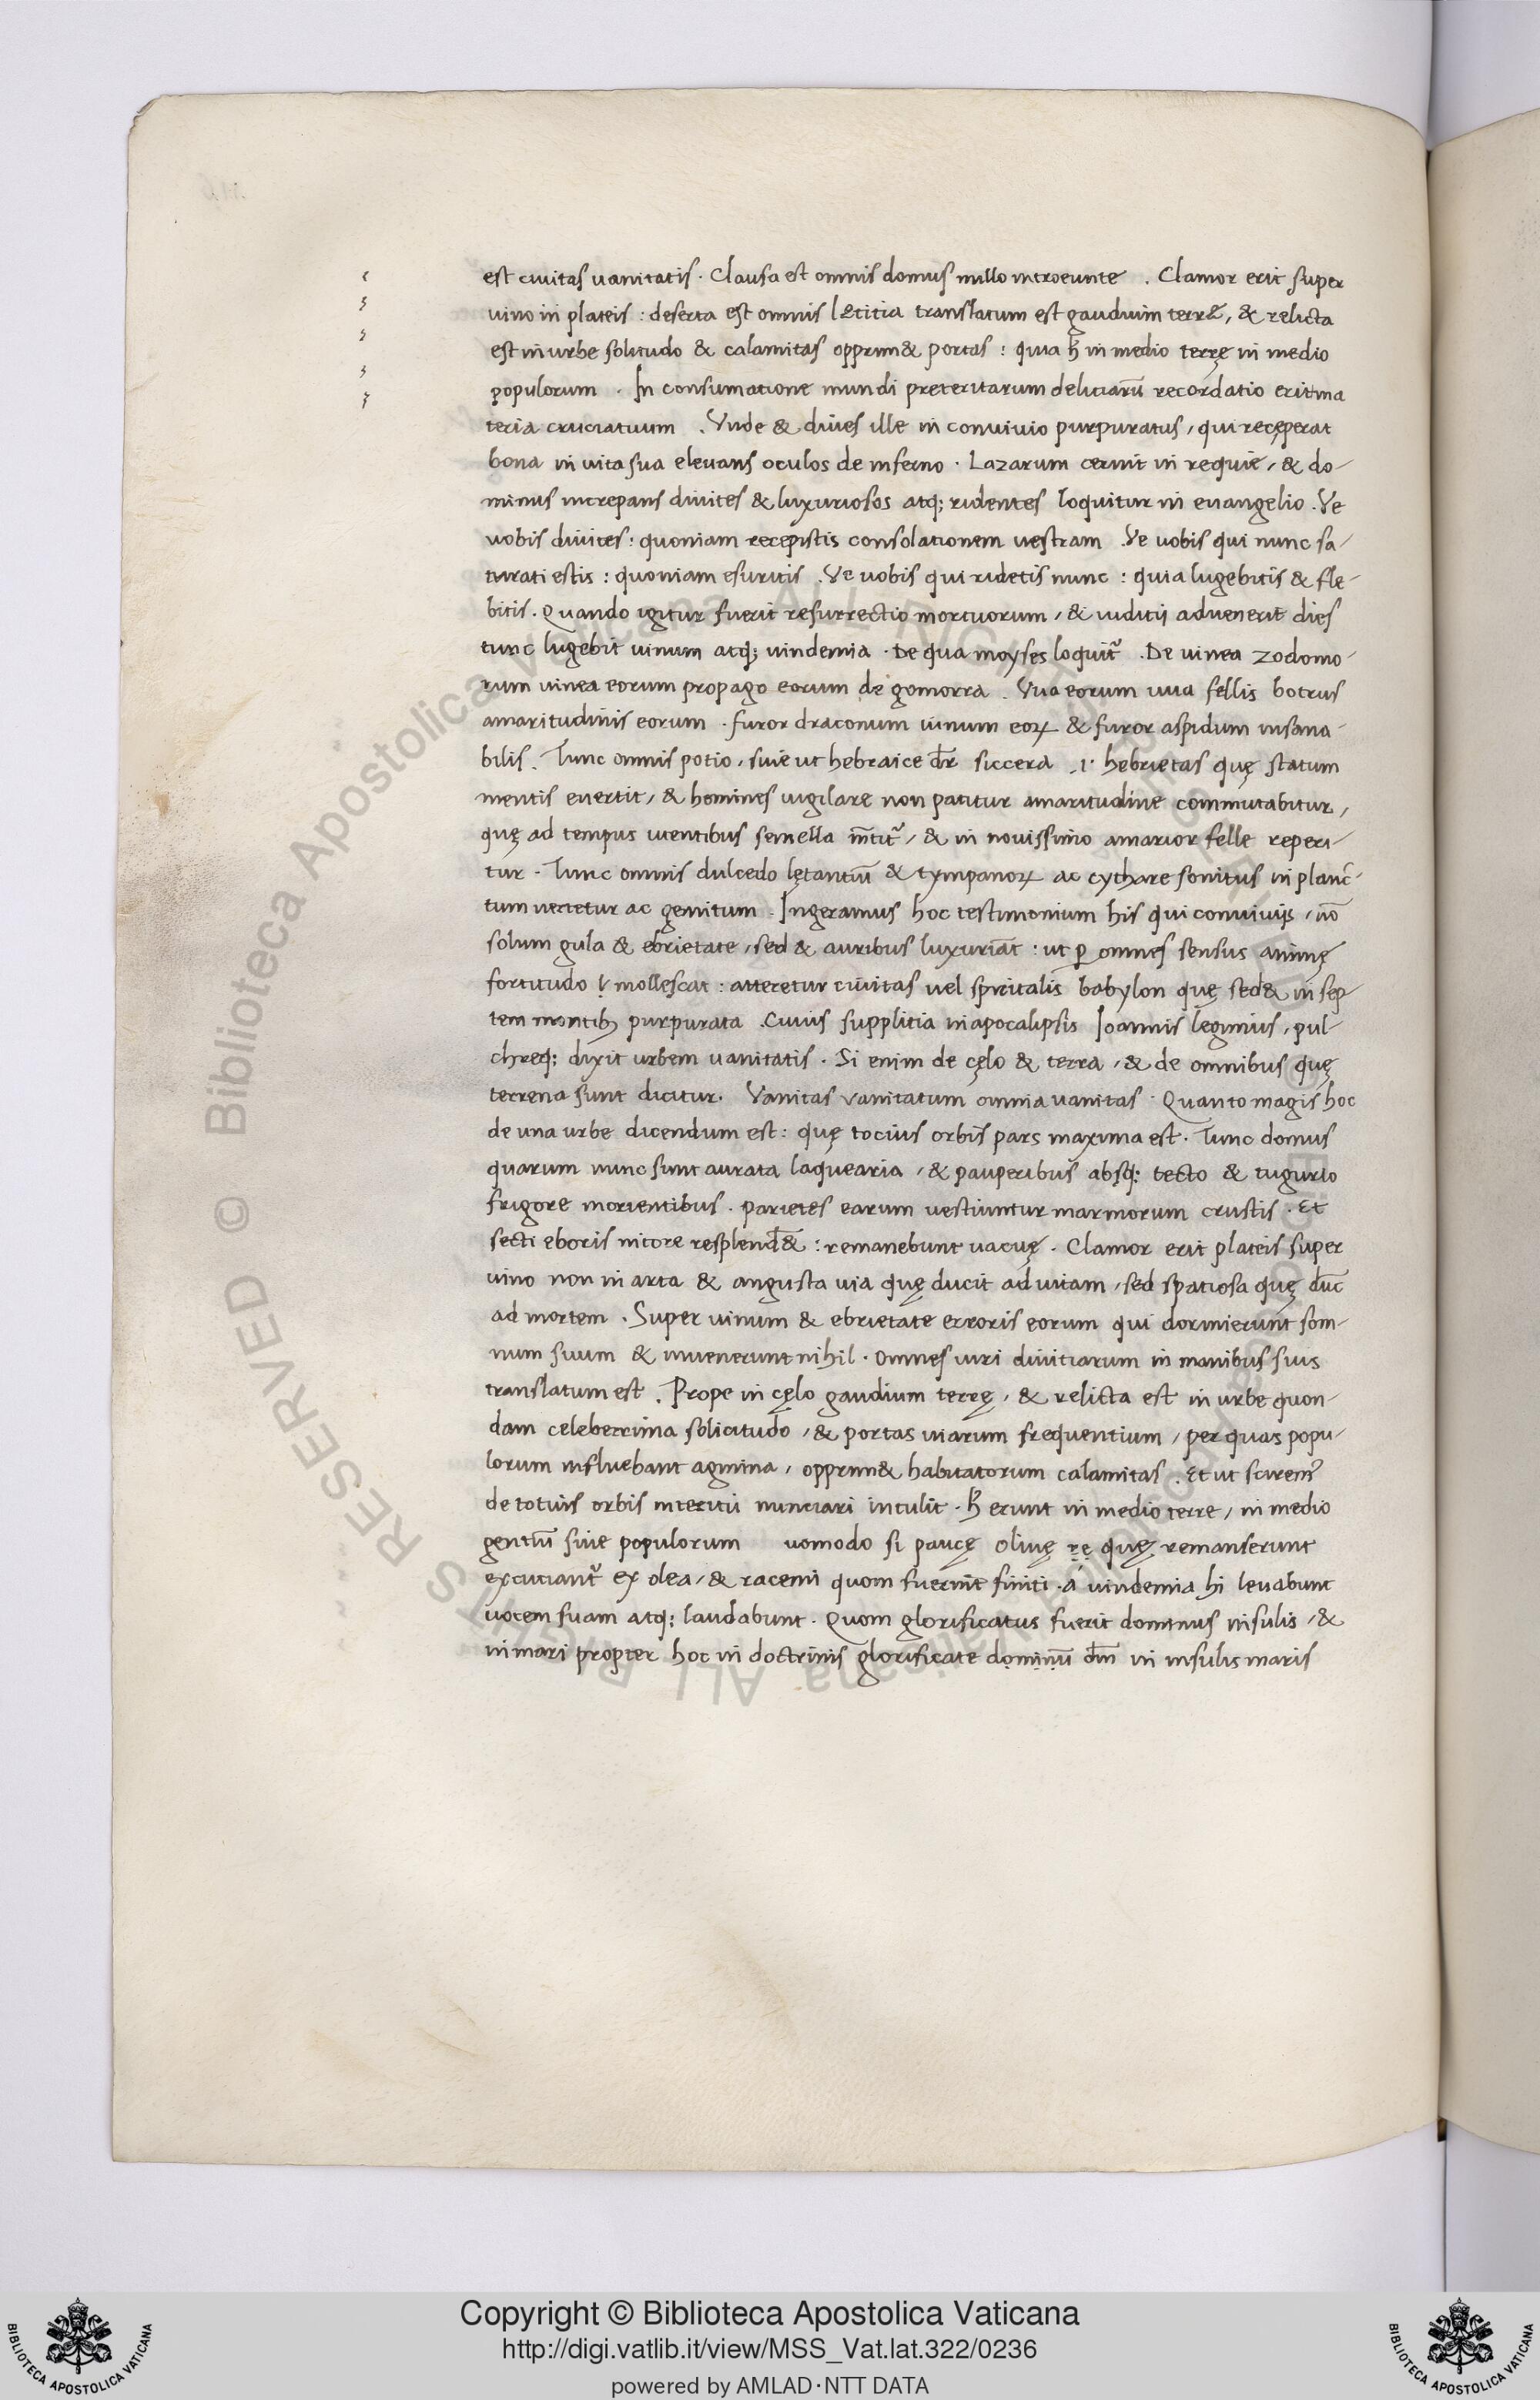 est ciuitas uanitatis . Clausa est omnis domus nullo introeunte . Clamor erit super
uino in plateis : deserta est omnis lętitia translatum est gaudium terrę , & relicta
est in urbe solitudo & calamitas opprim& portas : quia h̄ in medio terrę in medio
populorum . In consumatione mundi preteritarum deliciarū recordatio erit ma
teria cruciatuum . Vnde & diues ille in conuiuio purpuratus , qui receperat
bona in uita sua eleuans oculos de inferno . Lazarum cernit in requie , & do-
minus increpans diuites & luxuriosos atq; ridentes loquitur in euangelio . Ve
uobis diuites : quoniam recepistis consolationem uestram . Ve uobis qui nunc sa-
turati estis : quoniam esuritis . Ve uobis qui ridetis nunc : quia lugebitis & fle-
bitis . Quando igitur fuerit resurrectio mortuorum , & iuditii aduenerit dies
tunc lugebit uinum atq; uindemia . De qua moyses loquit̃ . De uinea zodomo-
rum uinea eorum propago eorum de gomorra . Vua eorum uua fellis botrus
amaritudinis eorum . furor draconum uinum eoꝝ & furor aspidum insana-
bilis . Tunc omnis potio , siue ut hebraice dr̄ siccera .i. hebrietas quę statum
mentis euertit , & homines uigilare non patitur amaritudine commutabitur ,
quę ad tempus uentibus semella m̄tit̃ , & in nouissimo amarior felle reperi-
tur . Tunc omnis dulcedo lętantiū & tympanoꝝ ac cythare sonitus in planc-
tum uertetur ac gemitum . Ingeramus hoc testimonium his qui conuiuijs , nō
solum gula & ebrietate , sed & auribus luxuriāt : ut ꝑ omnes sensus animę
fortitudo mollescat : atteretur ciuitas uel spiritalis babylon quę sed& in sep-
tem montibꝫ purpurata . Cuius supplitia in apocalipsis Ioannis legimus , pul-
chreq; dixit urbem uanitatis . Si enim de cęlo & terra , & de omnibus quę
terrena sunt dicitur . Vanitas vanitatum omnia uanitas . Quanto magis hoc
de una urbe dicendum est : quę tocius orbis pars maxima est . Tunc domus
quarum nunc sunt aurata laquearia , & pauperibus absq; tecto & tugurio
frigore morientibus . parietes earum uestiuntur marmorum crustis . Et
secti eboris nitore resplend& : remanebunt uacuę . Clamor erit plateis super
uino non in arta & angusta uia quę ducit ad uitam , sed spatiosa quę duc̄
ad mortem . Super uinum & ebrietate erroris eorum qui dormierunt som-
num suum & inuenerunt nihil . Omnes uiri diuitiarum in manibus suis
translatum est . Prope in cęlo gaudium terrę , & relicta est in urbe quon-
dam celeberrima solicitudo , & portas uiarum frequentium , per quas popu-
lorum influebant agmina , opprim& habitatorum calamitas . Et ut sciremꝰ
de totius orbis interitu nunciari intulit . h̄ erunt in medio terre , in medio
gentiū siue populorum uomodo si paucę oliuę rę quę remanserunt
excutiant̃ ex olea , & racemi quom fuerint finiti . a uindemia hi leuabunt
uocem suam atq; laudabunt . Quom glorificatus fuerit dominus insulis , &
in mari propter hoc in doctrinis glorificate dominū dm̄ in insulis maris
Copyright © Biblioteca Apostolica Vaticana
http://digi.vatlib.it/view/MSS_Vat.lat.322/0236
powered by AMLAD·NTT DATA
BIBLIOTECA APOSTOLICA VATICANA
BIBLIOTECA APOSTOLICA VATICANA